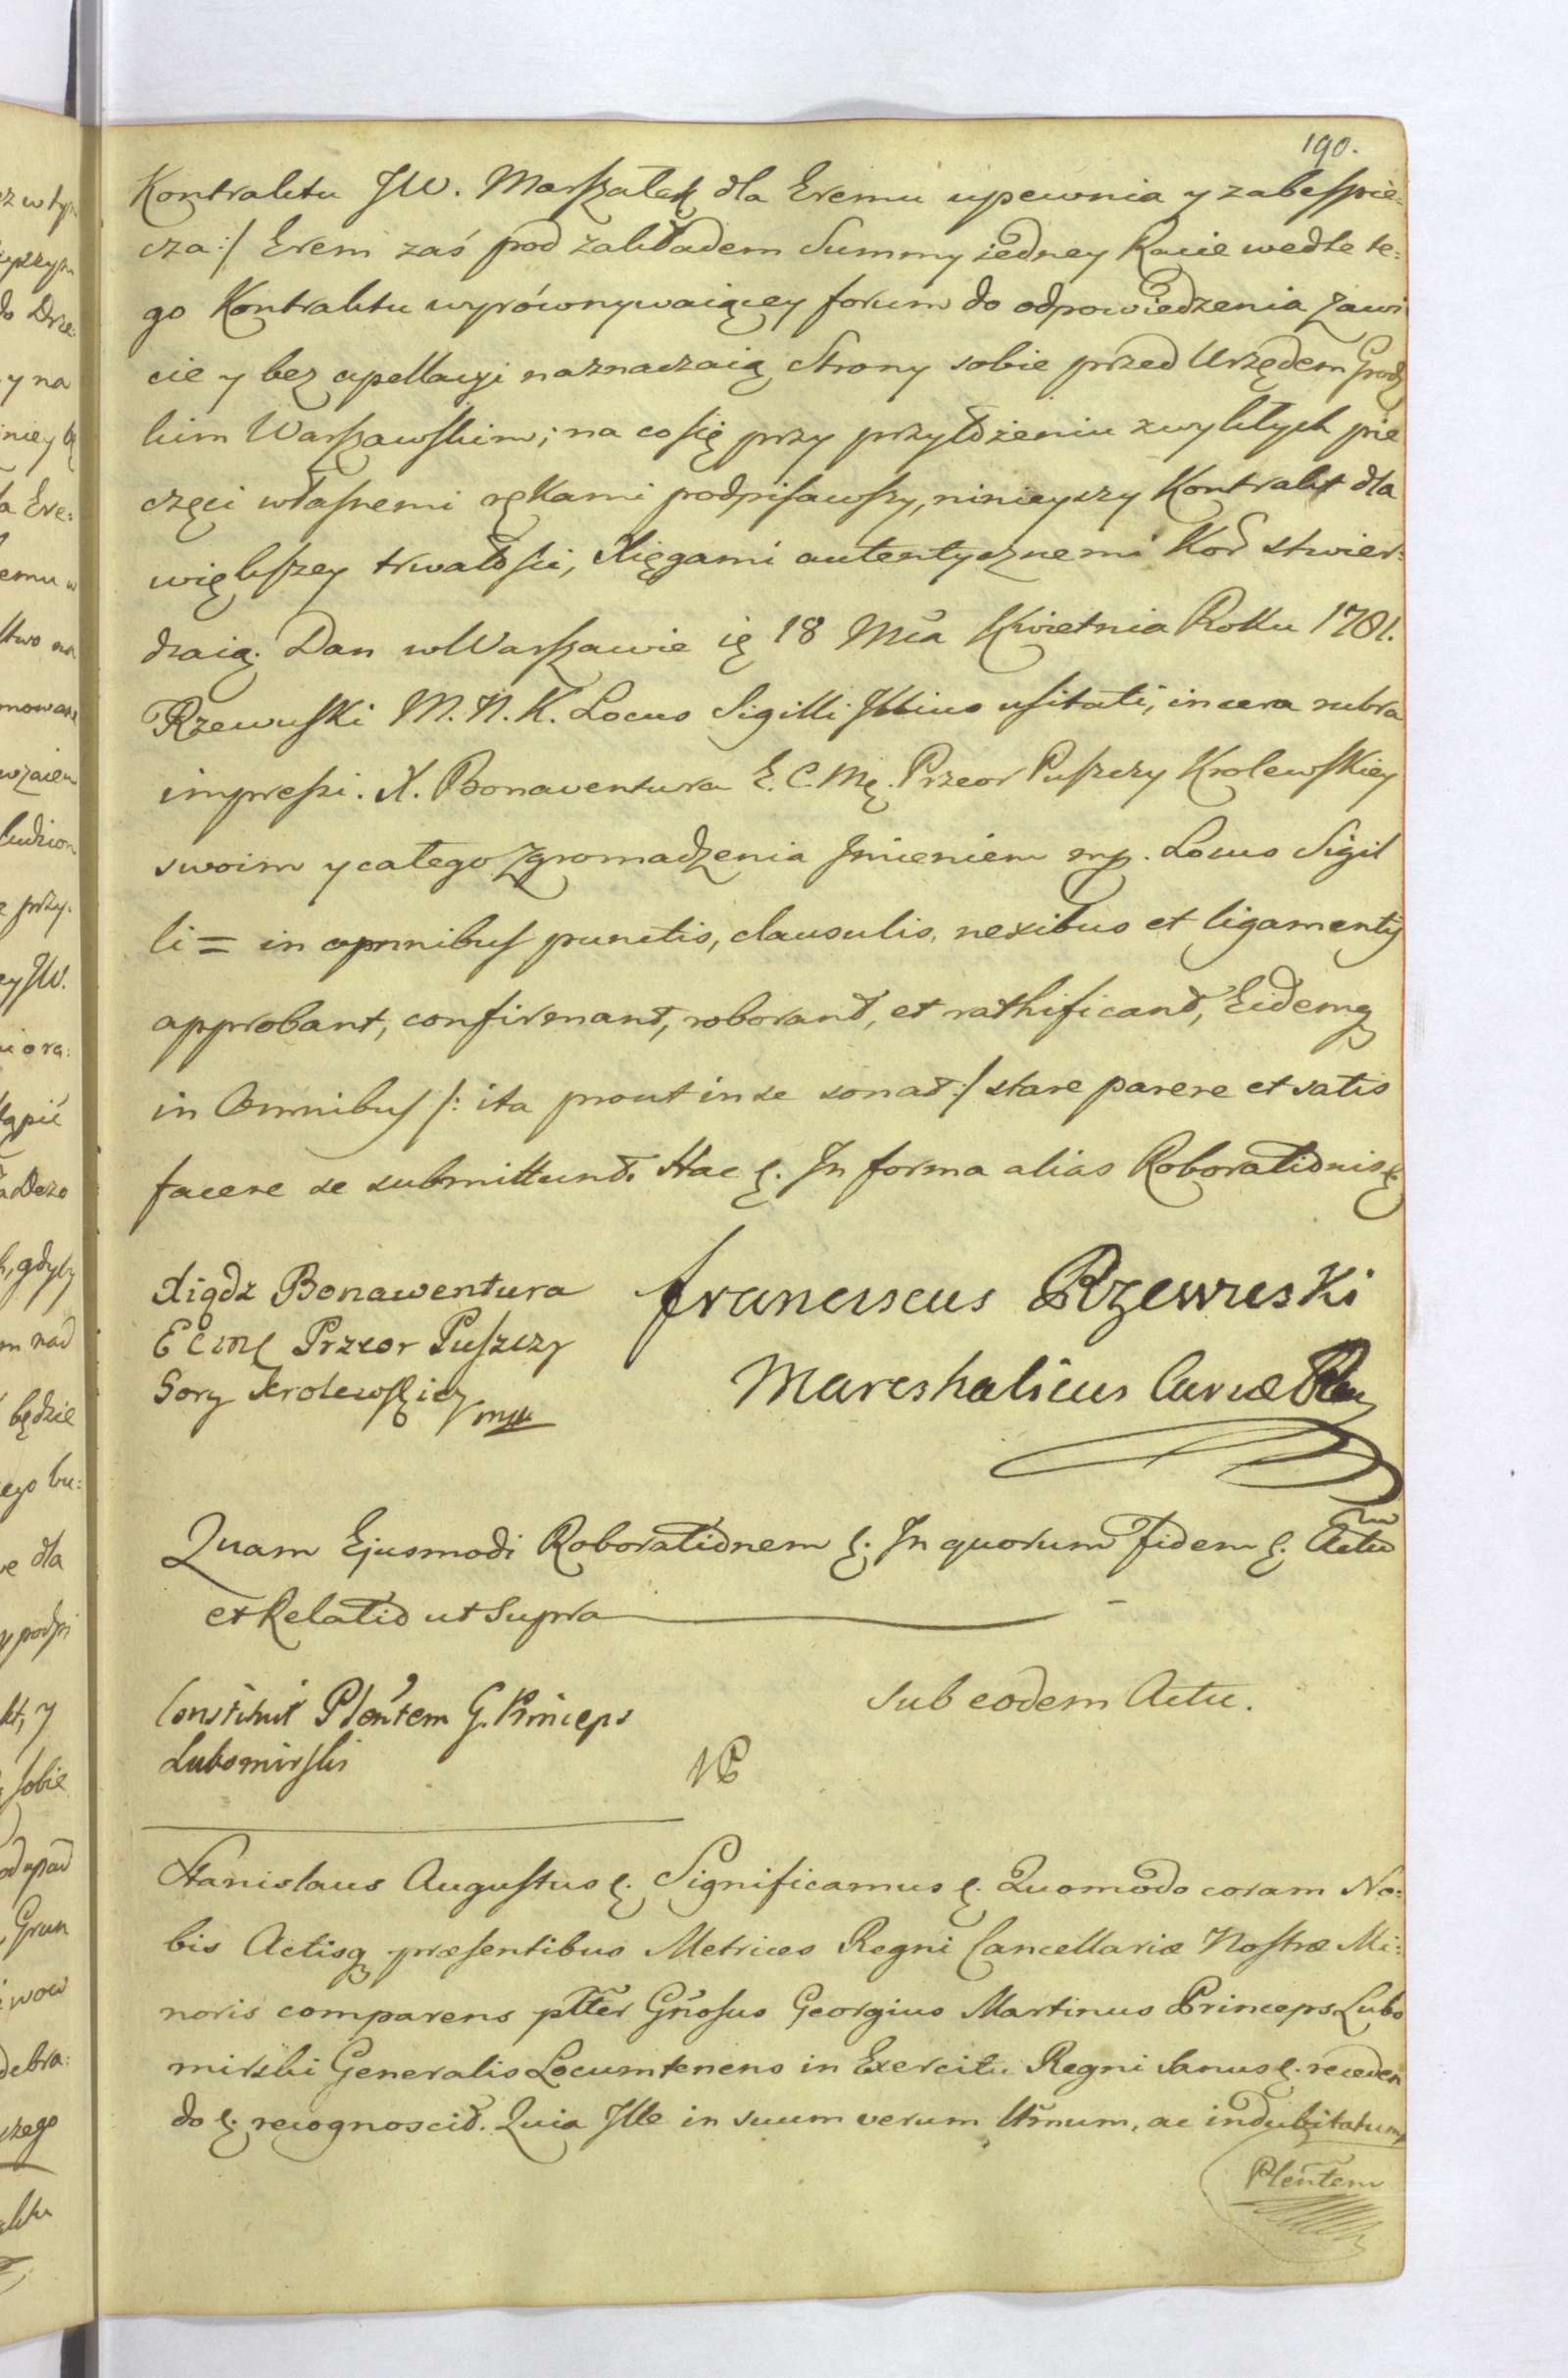 190.
Kontraktu JW. Marszałek dla Eremu upewnia y zabespie=
cza :/ Erem zaś pod zakładem Summy iedney Racie wedle te=
go Kontraktu wyrównywaiącey forum do odpowiedzenia zawi
cie y bez apellacyi naznaczaią Strony sobie przed Urzędem Grodz
kim Warszawskim; na co się przy przyłożeniu zwykłych pie
częci własnemi rękami podpisawszy, ninieyszy Kontrakt dla
większey trwałości, Xięgami autentycznemi Kor stwier=
dzaią. Dan w Warszawie ię 18 Mca Kwietnia Roku 1781.
Rzewuski M. N. K. Locus Sigilli Illius usitati, in cera rubra
impressi. X. Bonaventura E. C. Mę. Przeor Puszczy Krolewskiey
swoim y całego Zgromadzenia Imieniem mp. Locus Sigil
li = in omnibus punctis, clausulis, nexibus et ligamentis
approbant, confirmant, roborant, et rathificant, Eidemq
in Omnibus /: ita prout in se sonat :/ stare parere et satis
facere se submittunt. Hac ę. In forma alias Roborationis ę
Xiądz Bonawentura
E C M Przeor Puszczy
Gory Krolewskiey mp
Franciscus Rzewuski
Mareshalicus Curiæ Reg
Quam Ejusmodi Roborationem ę. In quorum Fidem ę. Actu
et Relatio ut Supra
Constituit Plentem G. Princeps
Lubomirski
Sub eodem Actu.
Stanislaus Augustus ę. Significamus ę. Quomodo coram No=
bis Actisq præsentibus Metrices Regni Cancellariæ Nostræ Mi=
noris comparens plter Gnosus Georgius Martinus Princeps Lubo
mirski Generalis Locumtenens in Exercitu Regni Sanus ę. receden
do ę. recognoscit. Quia Ille in suum verum ltmum, ac indubitatum
Plentem